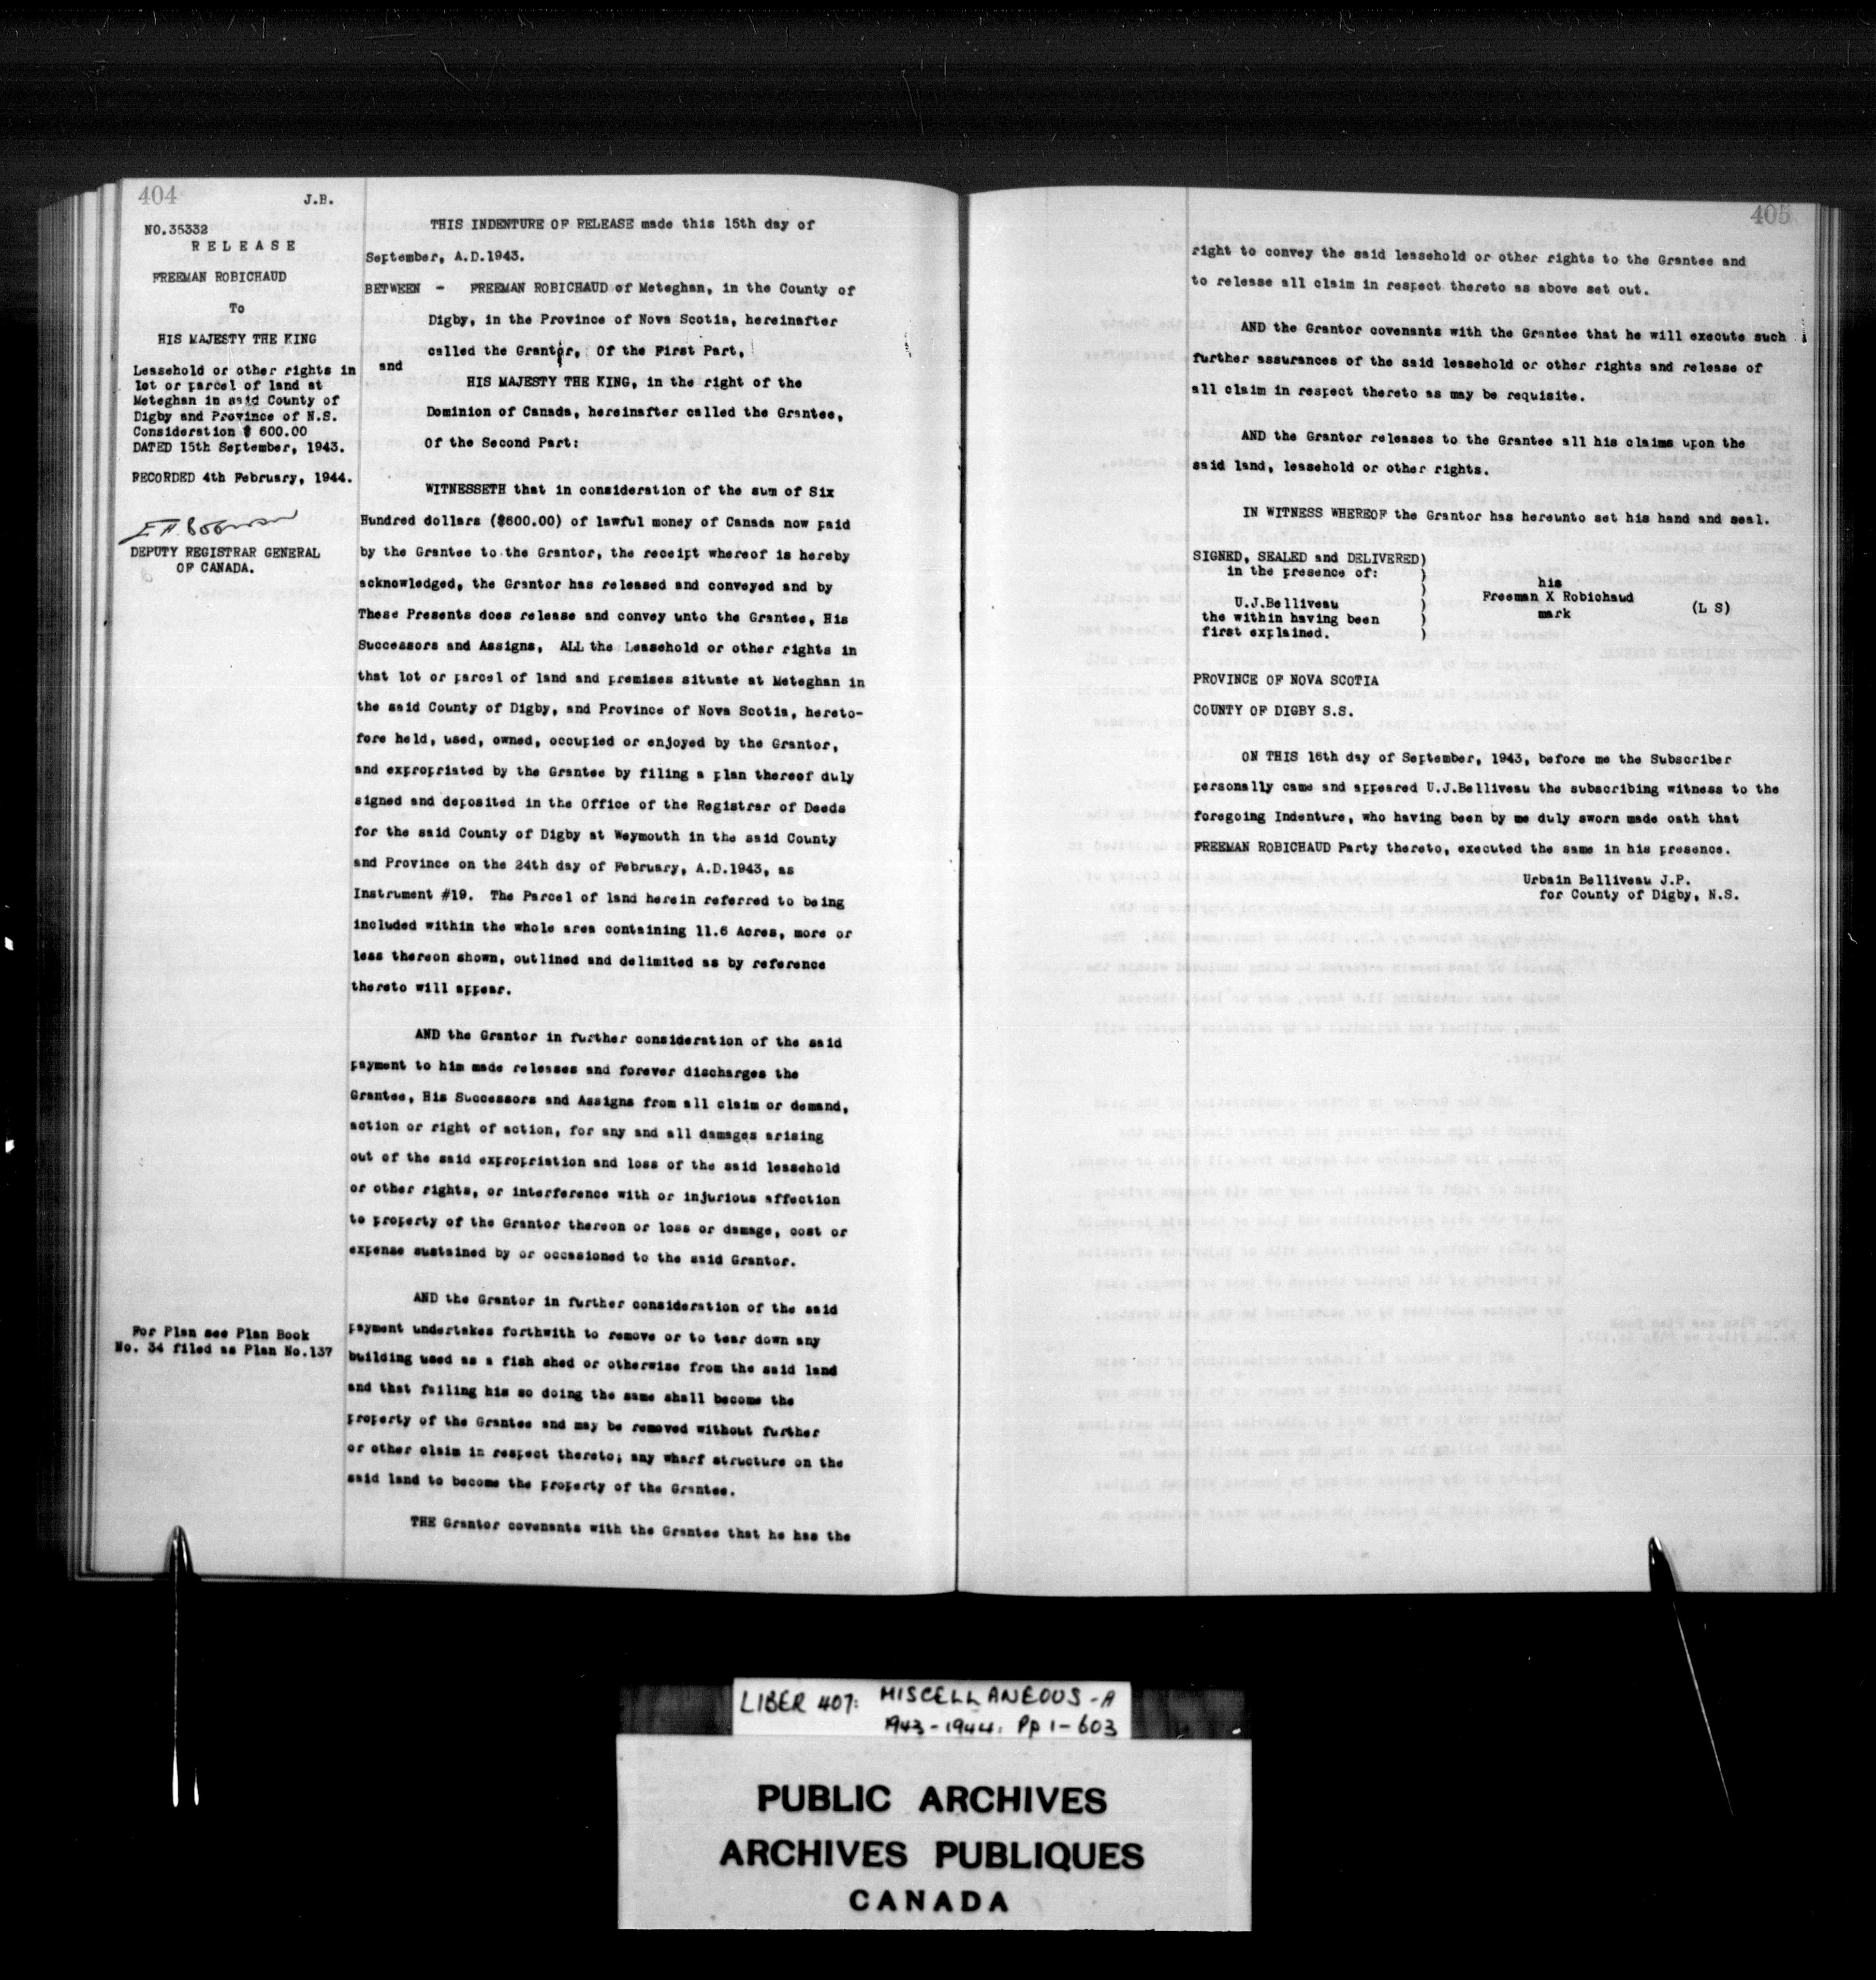 404
J.B.
NO.35332
RELEASE
FREEMAN ROBICHAUD
To
HIS MAJESTY THE KING
Leasehold or other rights in
lot or parcel of land at
Meteghan in said County of
Digby and Province of N.S.
Consideration $ 600.00
DATED 15th September, 1943.
RECORDED 4th February, 1944.
DEPUTY REGISTRAR GENERAL
OF CANADA.
For Plan see Plan Book
No. 34 filed as Plan No.137
THIS INDENTURE OF RELEASE made this 15th day of
September, A.D.1943.
BETWEEN - FREEMAN ROBICHAUD of Meteghan, in the County of
Digby, in the Province of Nova Scotia, hereinafter
called the Grantor, Of the First Part,
and
HIS MAJESTY THE KING, in the right of the
Dominion of Canada, hereinafter called the Grantee,
Of the Second Part:
WITNESSETH that in consideration of the sum of Six
Hundred dollars ($600.00) of lawful money of Canada now paid
by the Grantee to the Grantor, the receipt whereof is hereby
acknowledged, the Grantor has released and conveyed and by
These Presents does release and convey unto the Grantee, His
Successors and Assigns, ALL the Leasehold or other rights in
that lot or parcel of land and premises situate at Meteghan in
the said County of Digby, and Province of Nova Scotia, hereto-
fore held, used, owned, occupied or enjoyed by the Grantor,
and expropriated by the Grantee by filing a plan thereof duly
signed and deposited in the Office of the Registrar of Deeds
for the said County of Digby at Weymouth in the said County
and Province on the 24th day of February, A.D.1943, as
Instrument #19. The Parcel of land herein referred to being
included within the whole area containing 11.6 Acres, more or
less thereon shown, outlined and delimited as by reference
thereto will appear.
AND the Grantor in further consideration of the said
payment to him made releases and forever discharges the
Grantee, His Successors and Assigns from all claim or demand,
action or right of action, for any and all damages arising
out of the said expropriation and loss of the said leasehold
or other rights, or interference with or injurious affection
to property of the Grantor thereon or loss or damage, cost or
expense sustained by or occasioned to the said Grantor.
AND the Grantor in further consideration of the said
payment undertakes forthwith to remove or to tear down any
building used as a fish shed or otherwise from the said land
and that failing his so doing the same shall become the
property of the Grantee and may be removed without further
or other claim in respect thereto; any wharf structure on the
said land to become the property of the Grantee.
THE Grantor covenants with the Grantee that he has the
405
right to convey the said leasehold or other rights to the Grantee and
to release all claim in respect thereto as above set out.
AND the Grantor covenants with the Grantee that he will execute such
further assurances of the said leasehold or other rights and release of
all claim in respect thereto as may be requisite.
AND the Grantor releases to the Grantee all his claims upon the
said land, leasehold or other rights.
IN WITNESS WHEREOF the Grantor has hereunto set his hand and seal.
SIGNED, SEALED and DELIVERED)
in the presence of: )
U.J.Belliveau )
the within having been )
first explained. )
his
Freeman X Robichaud (L S)
mark
PROVINCE OF NOVA SCOTIA
COUNTY OF DIGBY S.S.
ON THIS 16th day of September, 1943, before me the Subscriber
personally came and appeared U.J.Belliveau the subscribing witness to the
foregoing Indenture, who having been by me duly sworn made oath that
FREEMAN ROBICHAUD Party thereto, executed the same in his presence.
Urbain Belliveau J.P.
for County of Digby, N.S.
LIBER 407: MISCELLANEOUS-A
1943-1944. Pp 1-603
PUBLIC ARCHIVES
ARCHIVES PUBLIQUES
CANADA